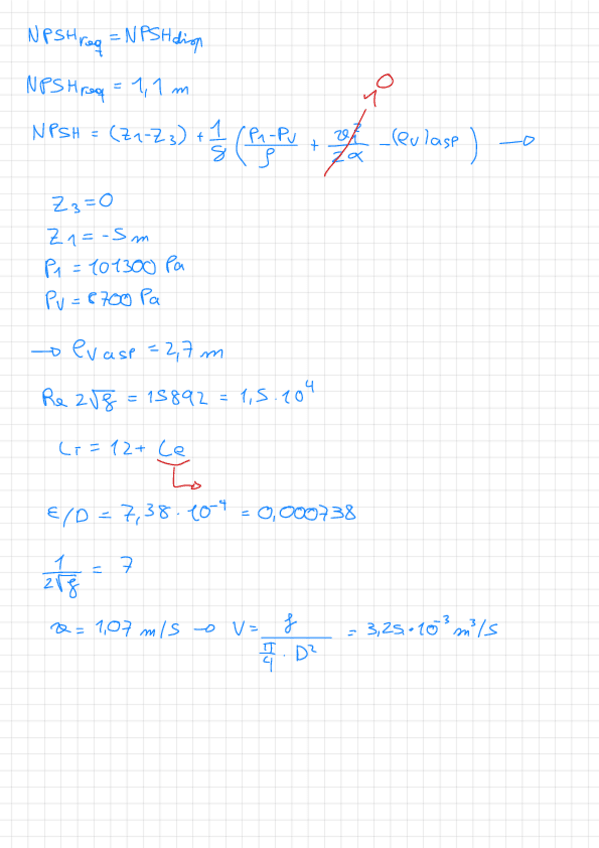 NPSHreq = NPSHdisp
NPSHreq = 1,1 m
NPSH = (Z1-Z3) + 1/g ( (P1-PV)/ρ + v1²/2α - (ev)asp ) → 0
Z3 = 0
Z1 = -5 m
P1 = 101300 Pa
PV = 8700 Pa
→ ev asp = 2,7 m
Re 2√f = 15892 = 1,5 · 10⁴
LT = 12 + Le
ε/D = 7,38 · 10⁻⁴ = 0,000738
1/(2√f) = 7
v = 1,07 m/s → V = f/(π/4 · D²) = 3,25 · 10⁻³ m³/s